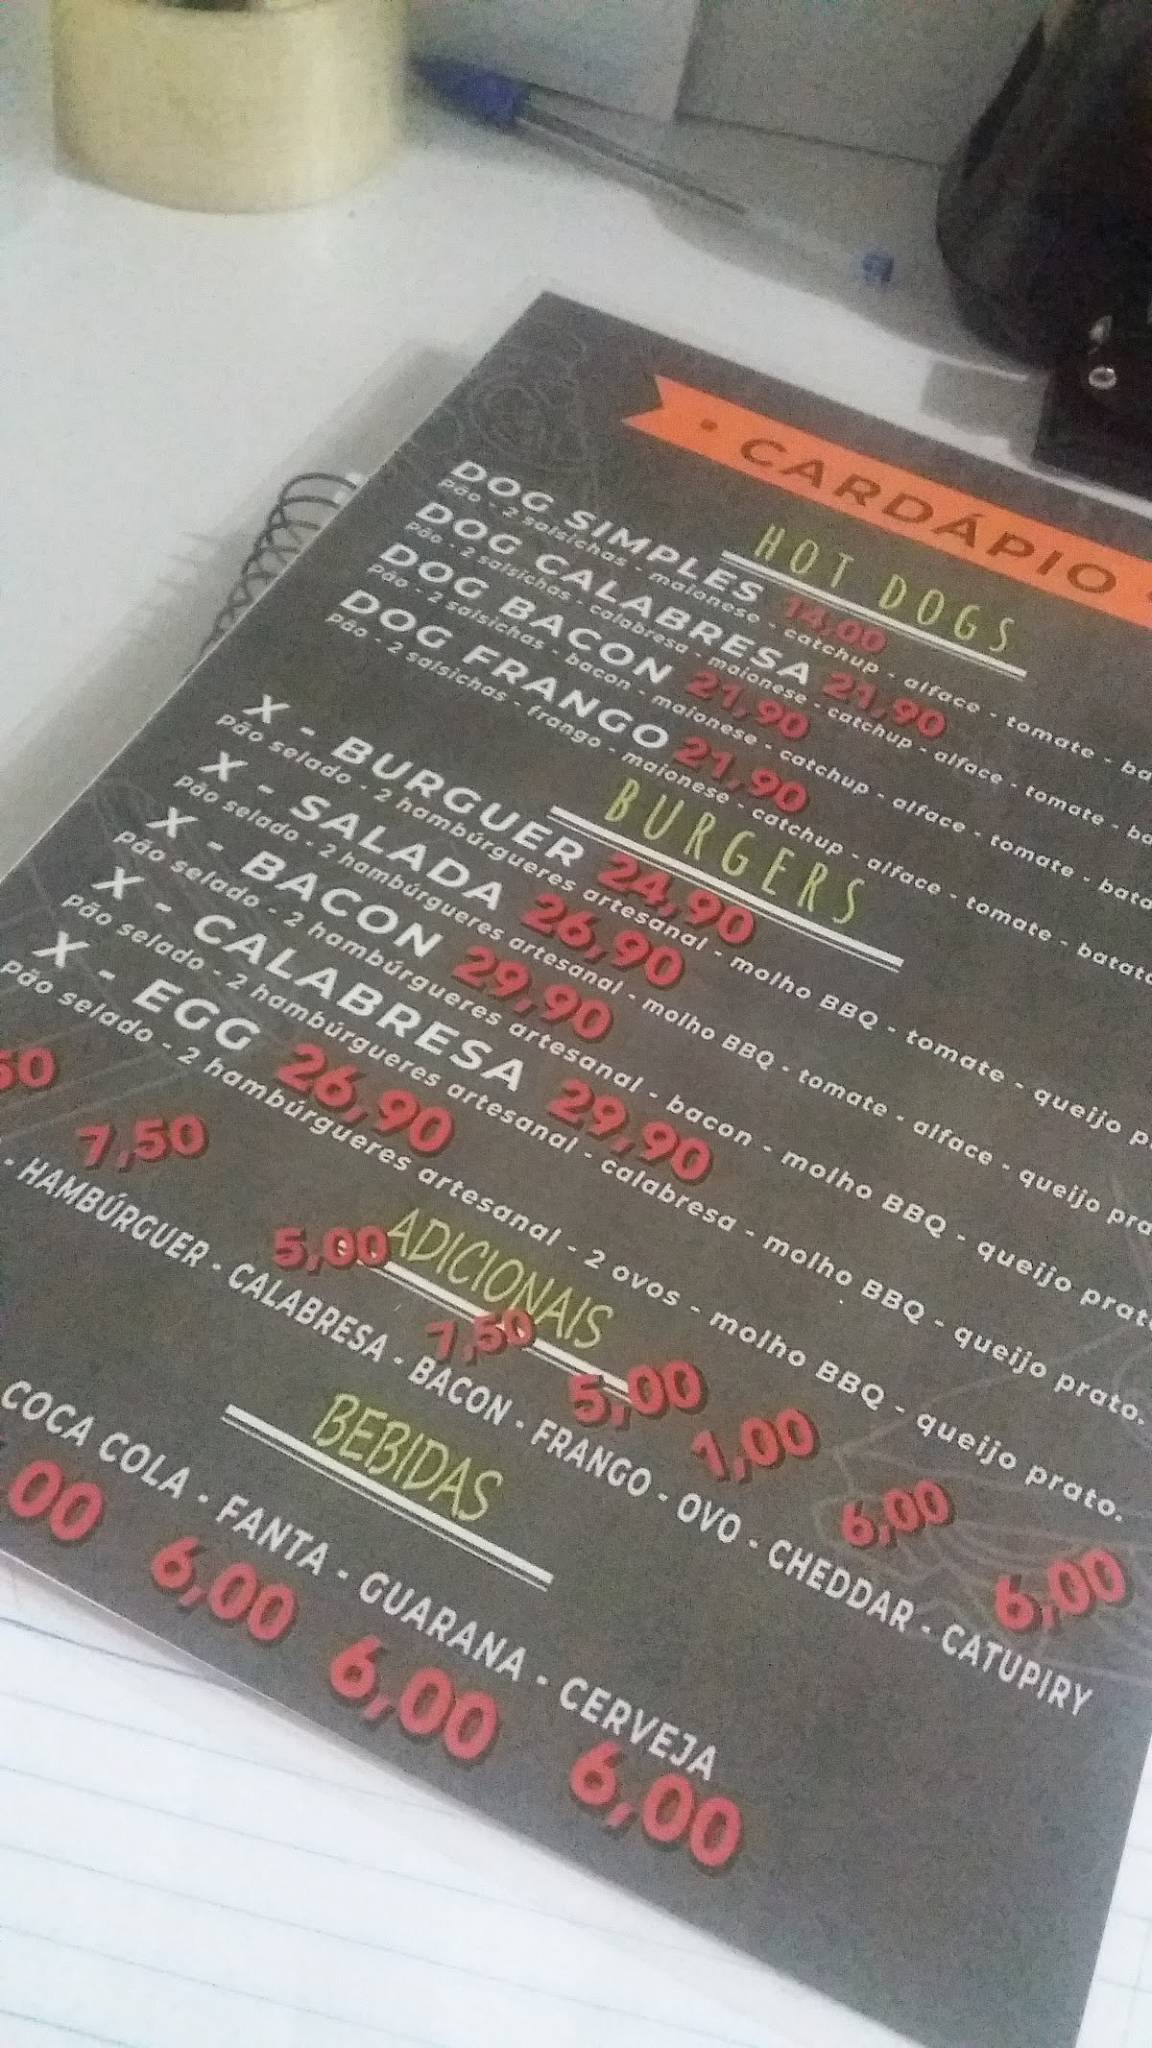 • CARDÁPIO
HOT DOGS
DOG SIMPLES 14,00
Pão - 2 salsichas - maionese - catchup - alface - tomate -
DOG CALABRESA 21,90
Pão - 2 salsichas - calabresa - maionese - catchup - alface - tomate -
DOG BACON 21,90
Pão - 2 salsichas - bacon - maionese - catchup - alface - tomate -
DOG FRANGO 21,90
Pão - 2 salsichas - frango - maionese - catchup - alface - tomate -
BURGERS
X - BURGUER 24,90
Pão selado - 2 hambúrgueres artesanal - molho BBQ - tomate - queijo
X - SALADA 26,90
Pão selado - 2 hambúrgueres artesanal - molho BBQ - tomate - alface - queijo
X - BACON 29,90
Pão selado - 2 hambúrgueres artesanal - bacon - molho BBQ - queijo
X - CALABRESA 29,90
Pão selado - 2 hambúrgueres artesanal - calabresa - molho BBQ - queijo prato.
X - EGG 26,90
Pão selado - 2 hambúrgueres artesanal - 2 ovos - molho BBQ - queijo prato.
ADICIONAIS
50 7,50 5,00 7,50 5,00 1,00 6,00 6,00
- HAMBÚRGUER - CALABRESA - BACON - FRANGO - OVO - CHEDDAR - CATUPIRY
BEBIDAS
COCA COLA - FANTA - GUARANA - CERVEJA
,00 6,00 6,00 6,00